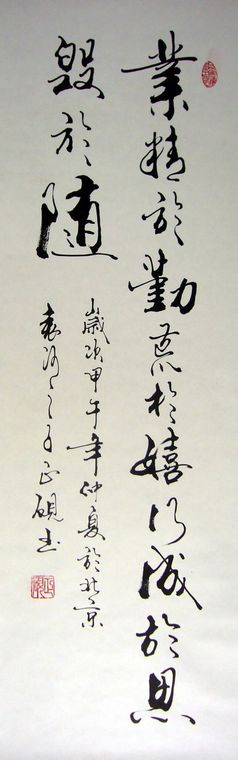 業精於勤荒於嬉行成於思
毀於随
歲次甲午年仲夏於北京
之子正硯书